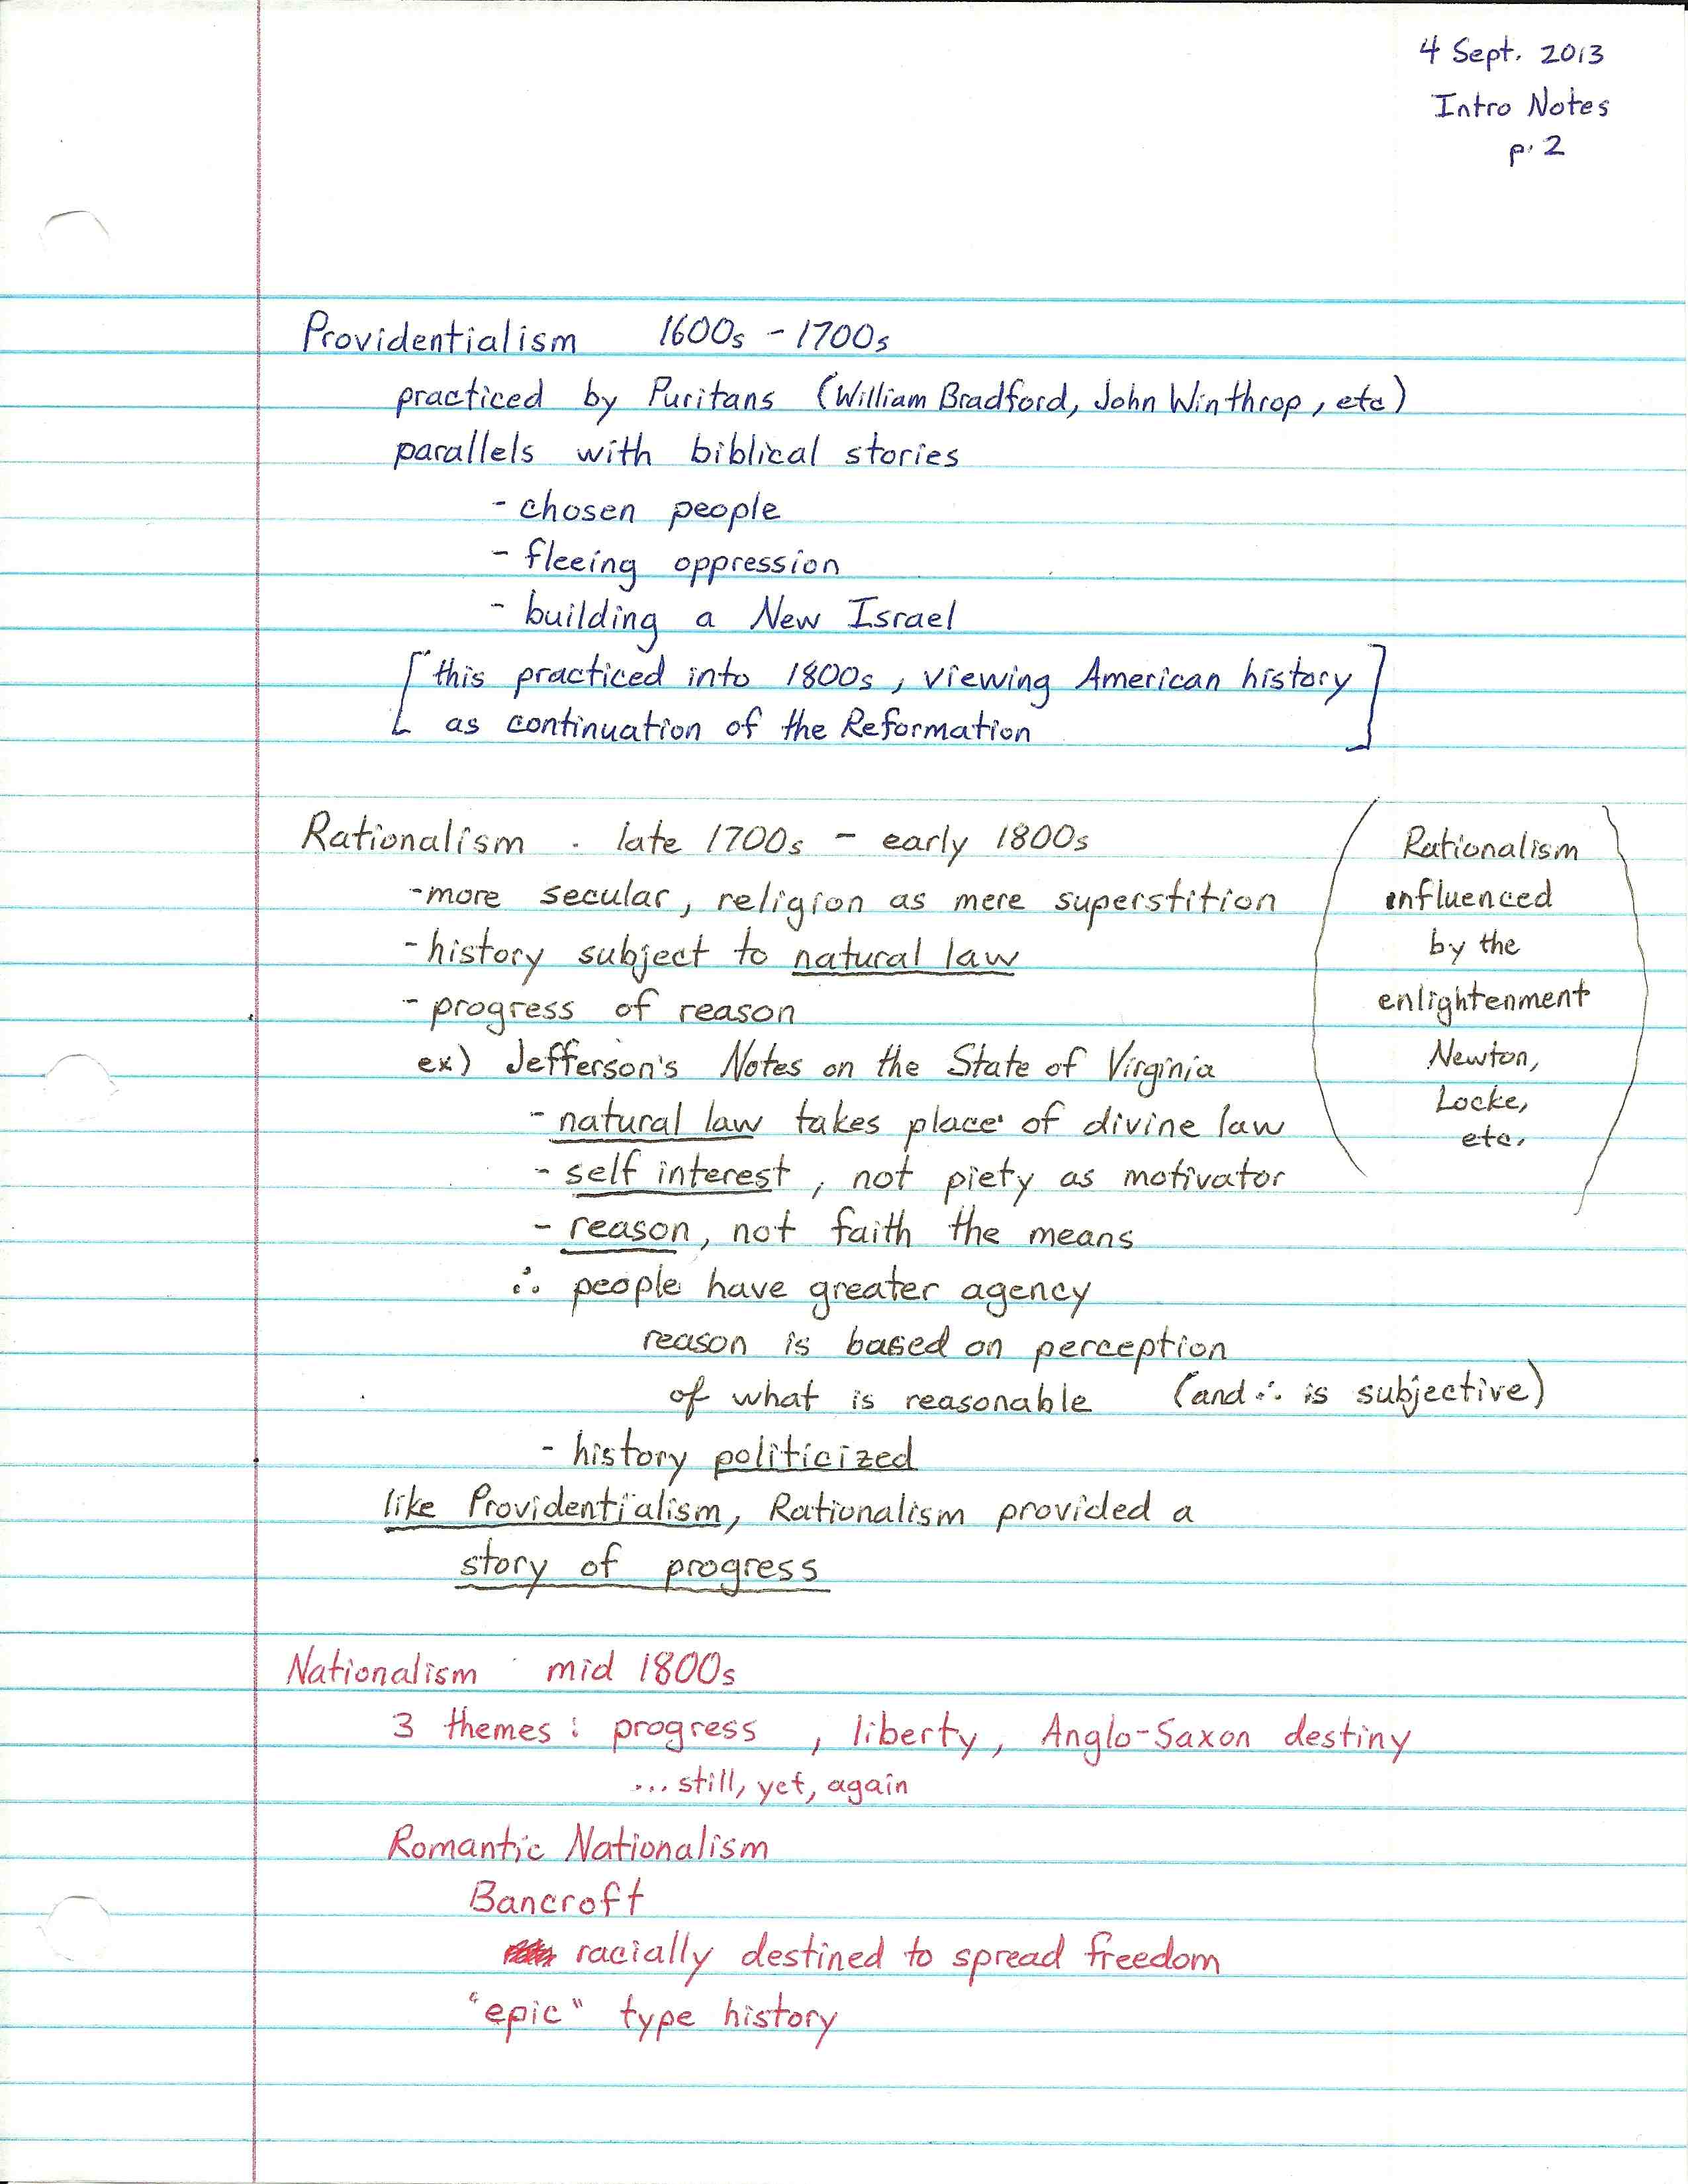 4 Sept. 2013
Intro Notes
p. 2
Providentialism 1600s - 1700s
practiced by Puritans (William Bradford, John Winthrop, etc)
parallels with biblical stories
- chosen people
- fleeing oppression
- building a New Israel
[this practiced into 1800s, viewing American history
as continuation of the Reformation]
Rationalism late 1700s - early 1800s
- more secular, religion as mere superstition
- history subject to natural law
- progress of reason
ex) Jefferson's Notes on the State of Virginia
- natural law takes place of divine law
- self interest, not piety as motivator
- reason, not faith the means
∴ people have greater agency
reason is based on perception
of what is reasonable (and ∴ is subjective)
- history politicized
like Providentialism, Rationalism provided a
story of progress
(Rationalism
influenced
by the
enlightenment
Newton,
Locke,
etc.)
Nationalism mid 1800s
3 themes: progress, liberty, Anglo-Saxon destiny
... still, yet, again
Romantic Nationalism
Bancroft
racially destined to spread freedom
"epic" type history